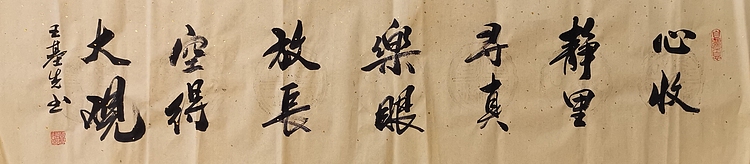 心收
静里
寻真
樂眼
放長
空得
大观
王基先书